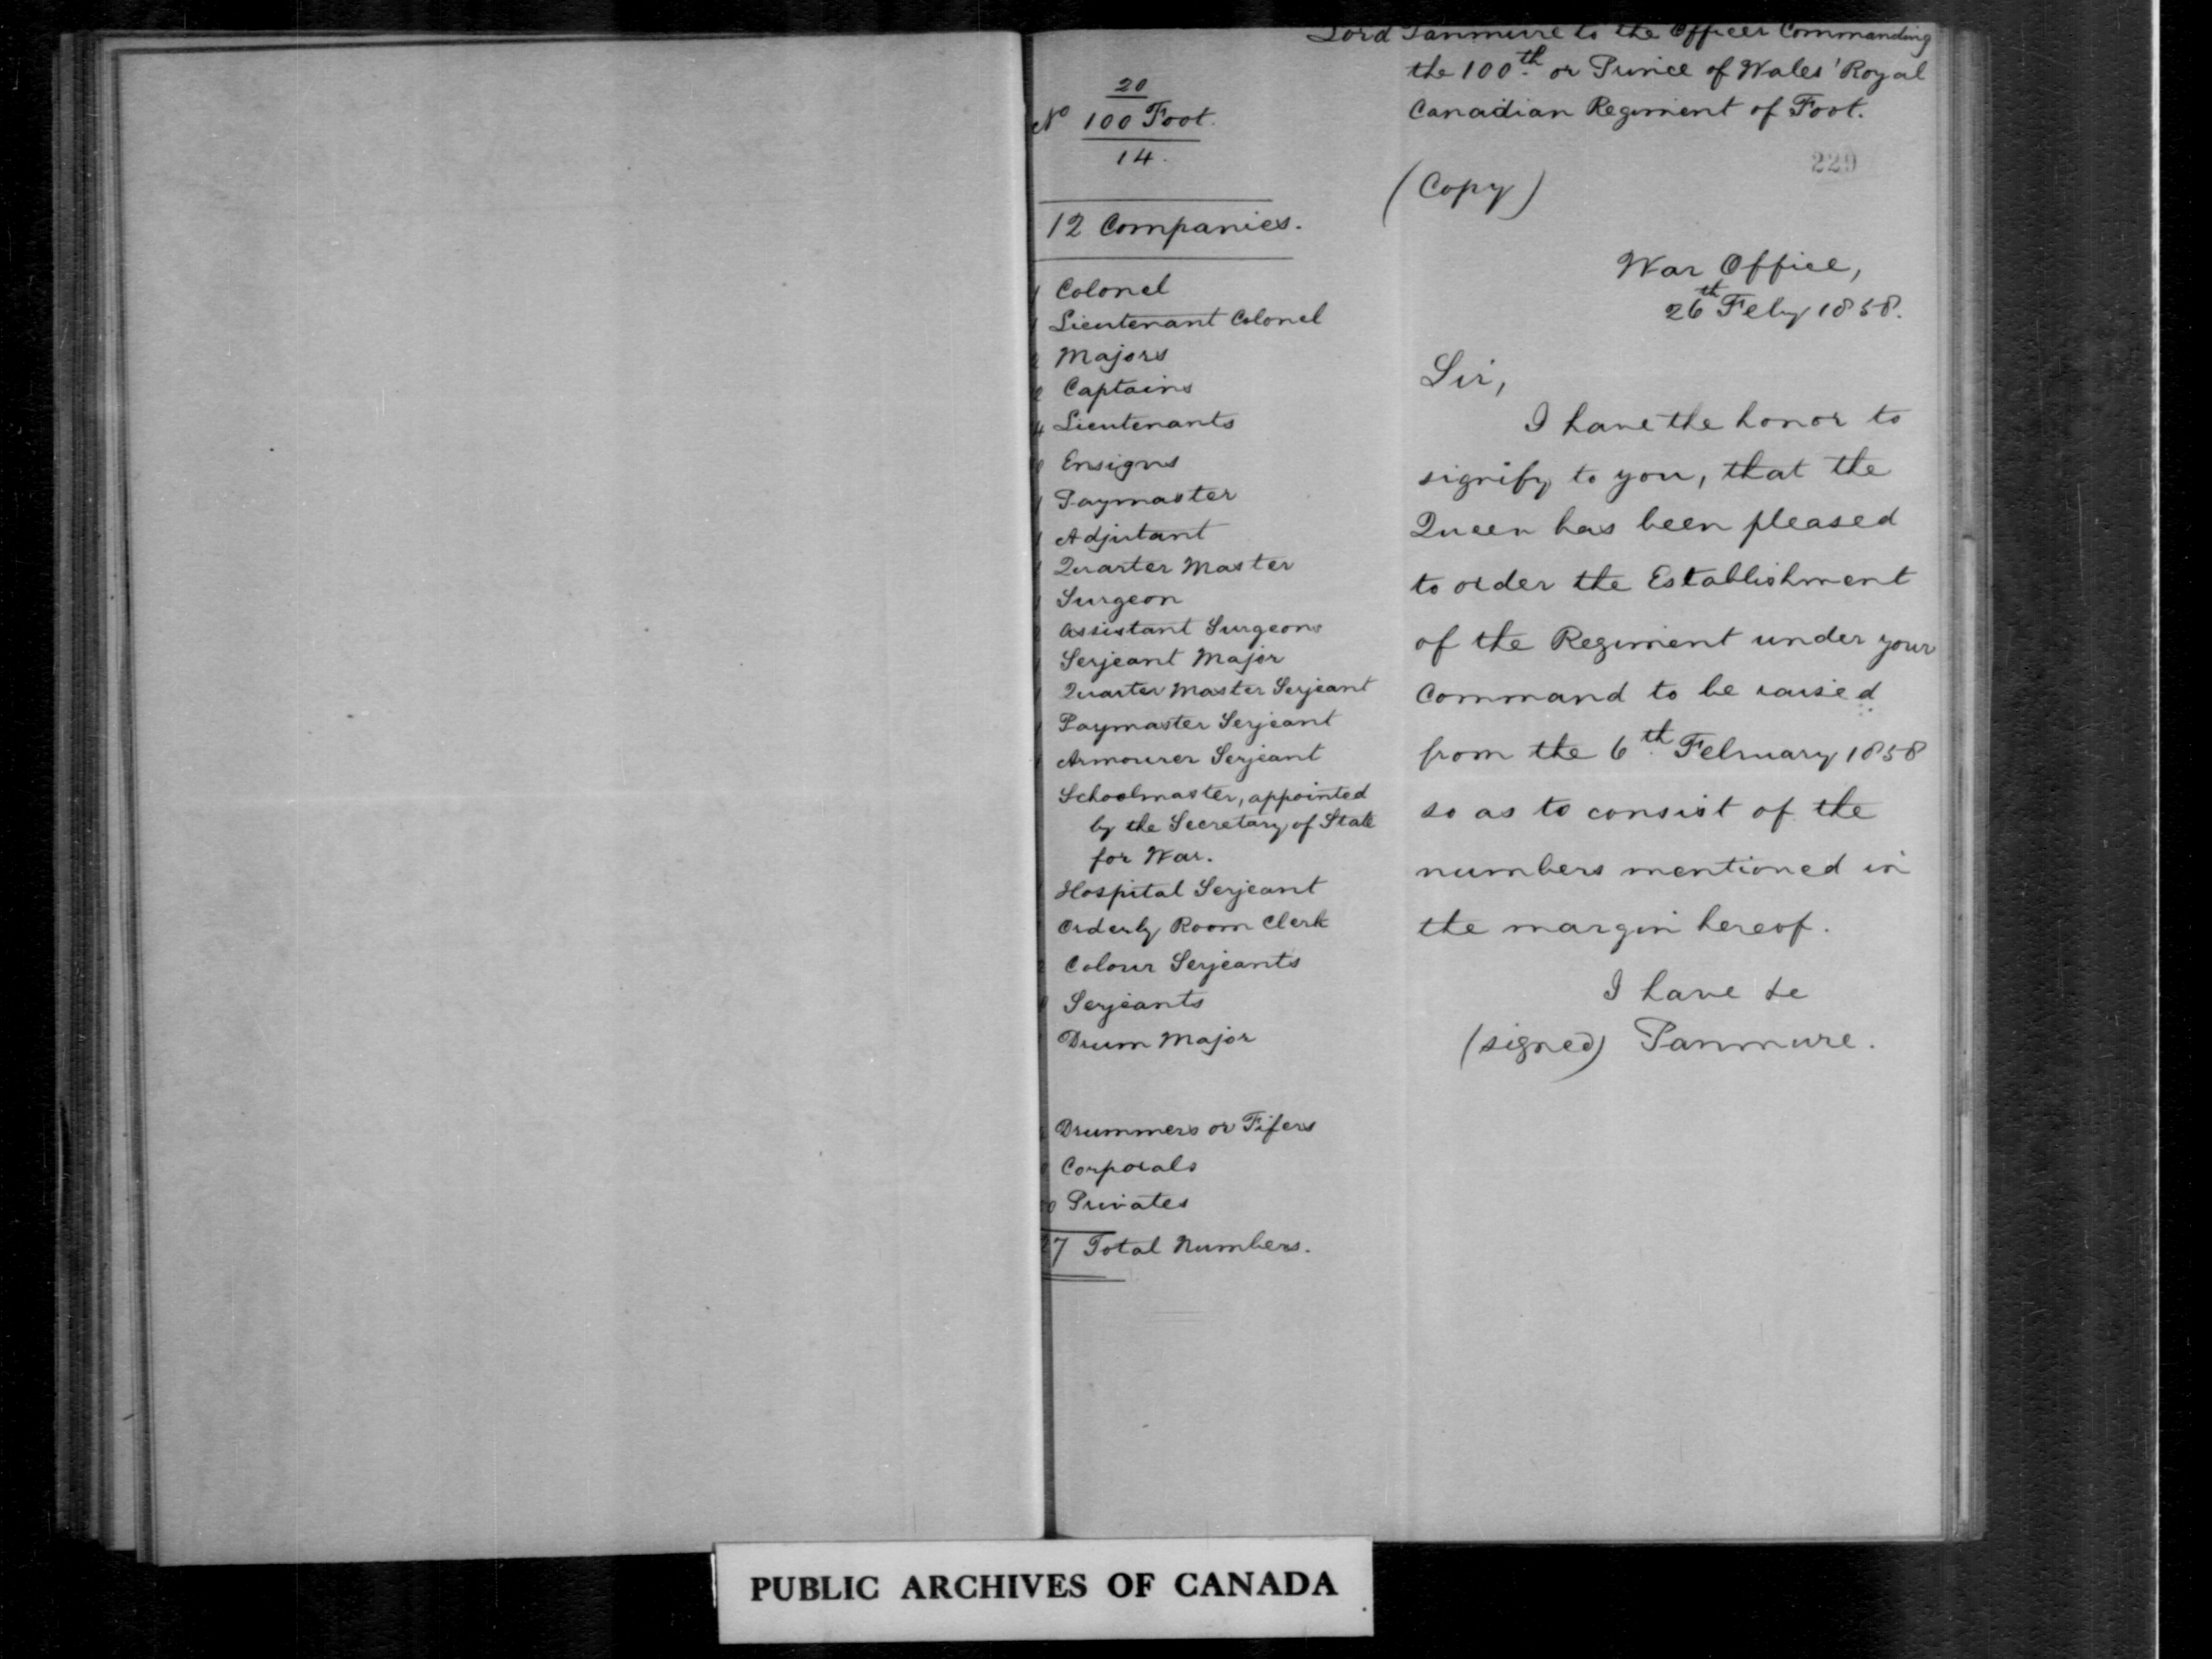 Lord Panmure to the Officer Commanding
the 100th or Prince of Wales' Royal
Canadian Regiment of Foot.
229
20
No 100 Foot.
14.
(Copy)
12 Companies.
War Office,
26th Feby 1858.
Colonel
Lieutenant Colonel
Majors
Captains
Lieutenants
Ensigns
Paymaster
Adjutant
Quarter Master
Surgeon
Assistant Surgeons
Serjeant Major
Quarter Master Serjeant
Paymaster Serjeant
Armourer Serjeant
Schoolmaster, appointed
by the Secretary of State
for War.
Hospital Serjeant
Orderly Room Clerk
Colour Serjeants
Serjeants
Drum Major
Drummers or Fifers
Corporals
Privates
7 Total Numbers.
Sir,
I have the honor to
signify to you, that the
Queen has been pleased
to order the Establishment
of the Regiment under your
Command to be raised
from the 6th February 1858
so as to consist of the
numbers mentioned in
the margin hereof.
I have &c
(signed) Panmure.
PUBLIC ARCHIVES OF CANADA